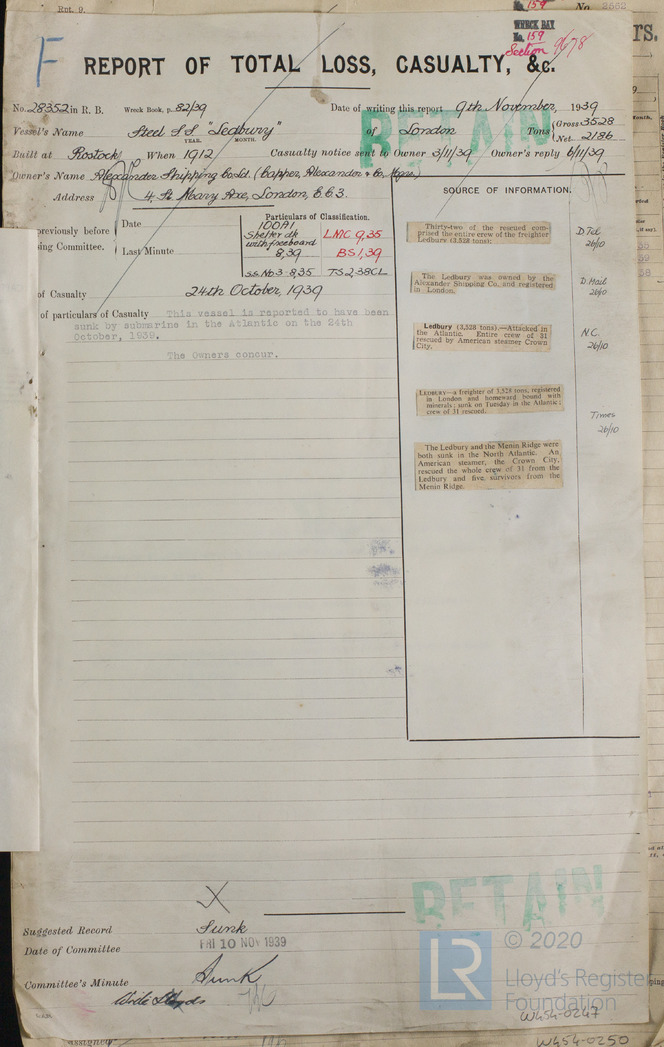 Rpt. 9.
No. 159
WRECK BAY
No. 159
Section 9678
No. 2662
F
REPORT OF TOTAL LOSS, CASUALTY, &c.
No. 28352 in R. B. Wreck Book, p. 82/39 Date of writing this report 9th November, 1939
Vessel's Name Steel S.S. "Ledbury" of London Tons { Gross 3528
YEAR. MONTH. Net 2186
Built at Rostock When 1912 Casualty notice sent to Owner 3/11/39 Owner's reply 6/11/39
Owner's Name Alexander Shipping Co. Ld. (Capper, Alexander & Co., Mgrs.)
Address 4, St. Mary Axe, London, E.C.3.
RETAIN
SOURCE OF INFORMATION.
previously before
ing Committee.
Date
Last Minute
Particulars of Classification.
100A1
Shelter dk
with freeboard
8,39
ss. No 3 - 8,35
LMC 9,35
BS 1,39
TS 2,38 CL
of Casualty 24th October, 1939
of particulars of Casualty This vessel is reported to have been
sunk by submarine in the Atlantic on the 24th
October, 1939.
The Owners concur.
Thirty-two of the rescued com-
prised the entire crew of the freighter
Ledbury (3,528 tons);
D Tel
26/10
The Ledbury was owned by the
Alexander Shipping Co. and registered
in London.
D. Mail
26/10
Ledbury (3,528 tons).—Attacked in
the Atlantic. Entire crew of 31
rescued by American steamer Crown
City.
N.C.
26/10
LEDBURY—a freighter of 3,528 tons, registered
in London and homeward bound with
minerals; sunk on Tuesday in the Atlantic;
crew of 31 rescued.
Times
26/10
The Ledbury and the Menin Ridge were
both sunk in the North Atlantic. An
American steamer, the Crown City,
rescued the whole crew of 31 from the
Ledbury and five survivors from the
Menin Ridge.
RETAIN
Suggested Record Sunk
Date of Committee FRI 10 NOV 1939
Committee's Minute Sunk
LR
© 2020
Lloyd's Register
Foundation
W454-0247
W454-0250